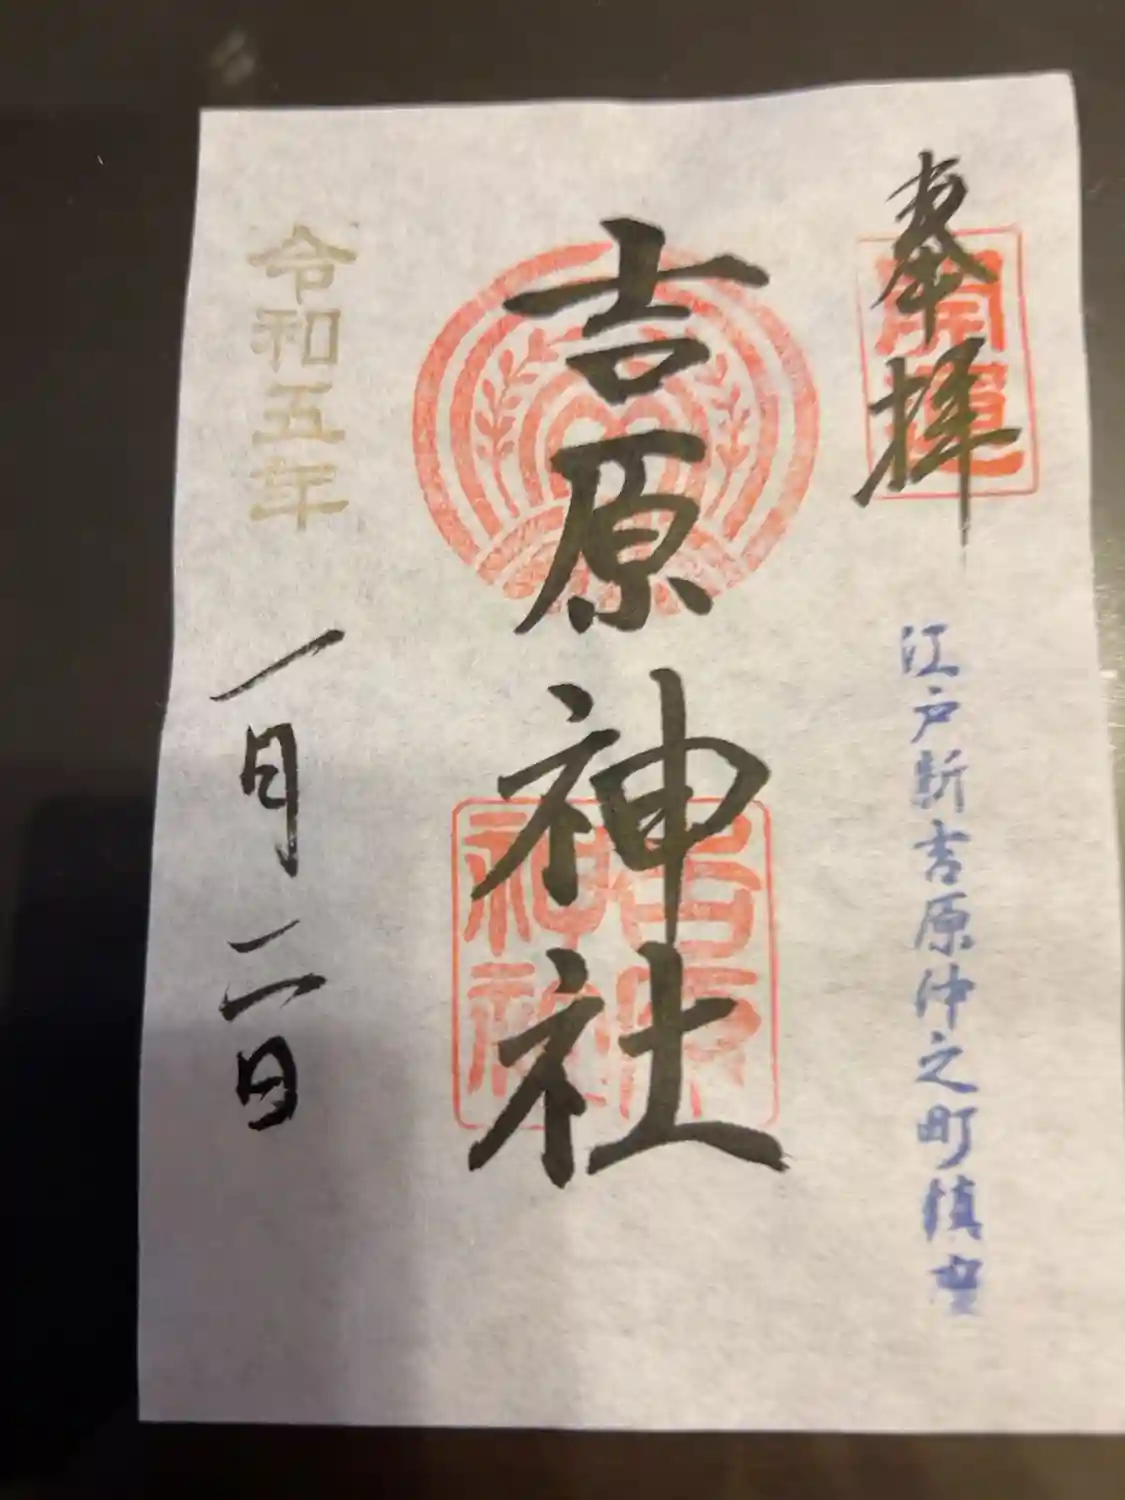 奉拝
開運
江戸新吉原仲之町鎮座
吉原神社
吉原神社
令和五年
一月二日